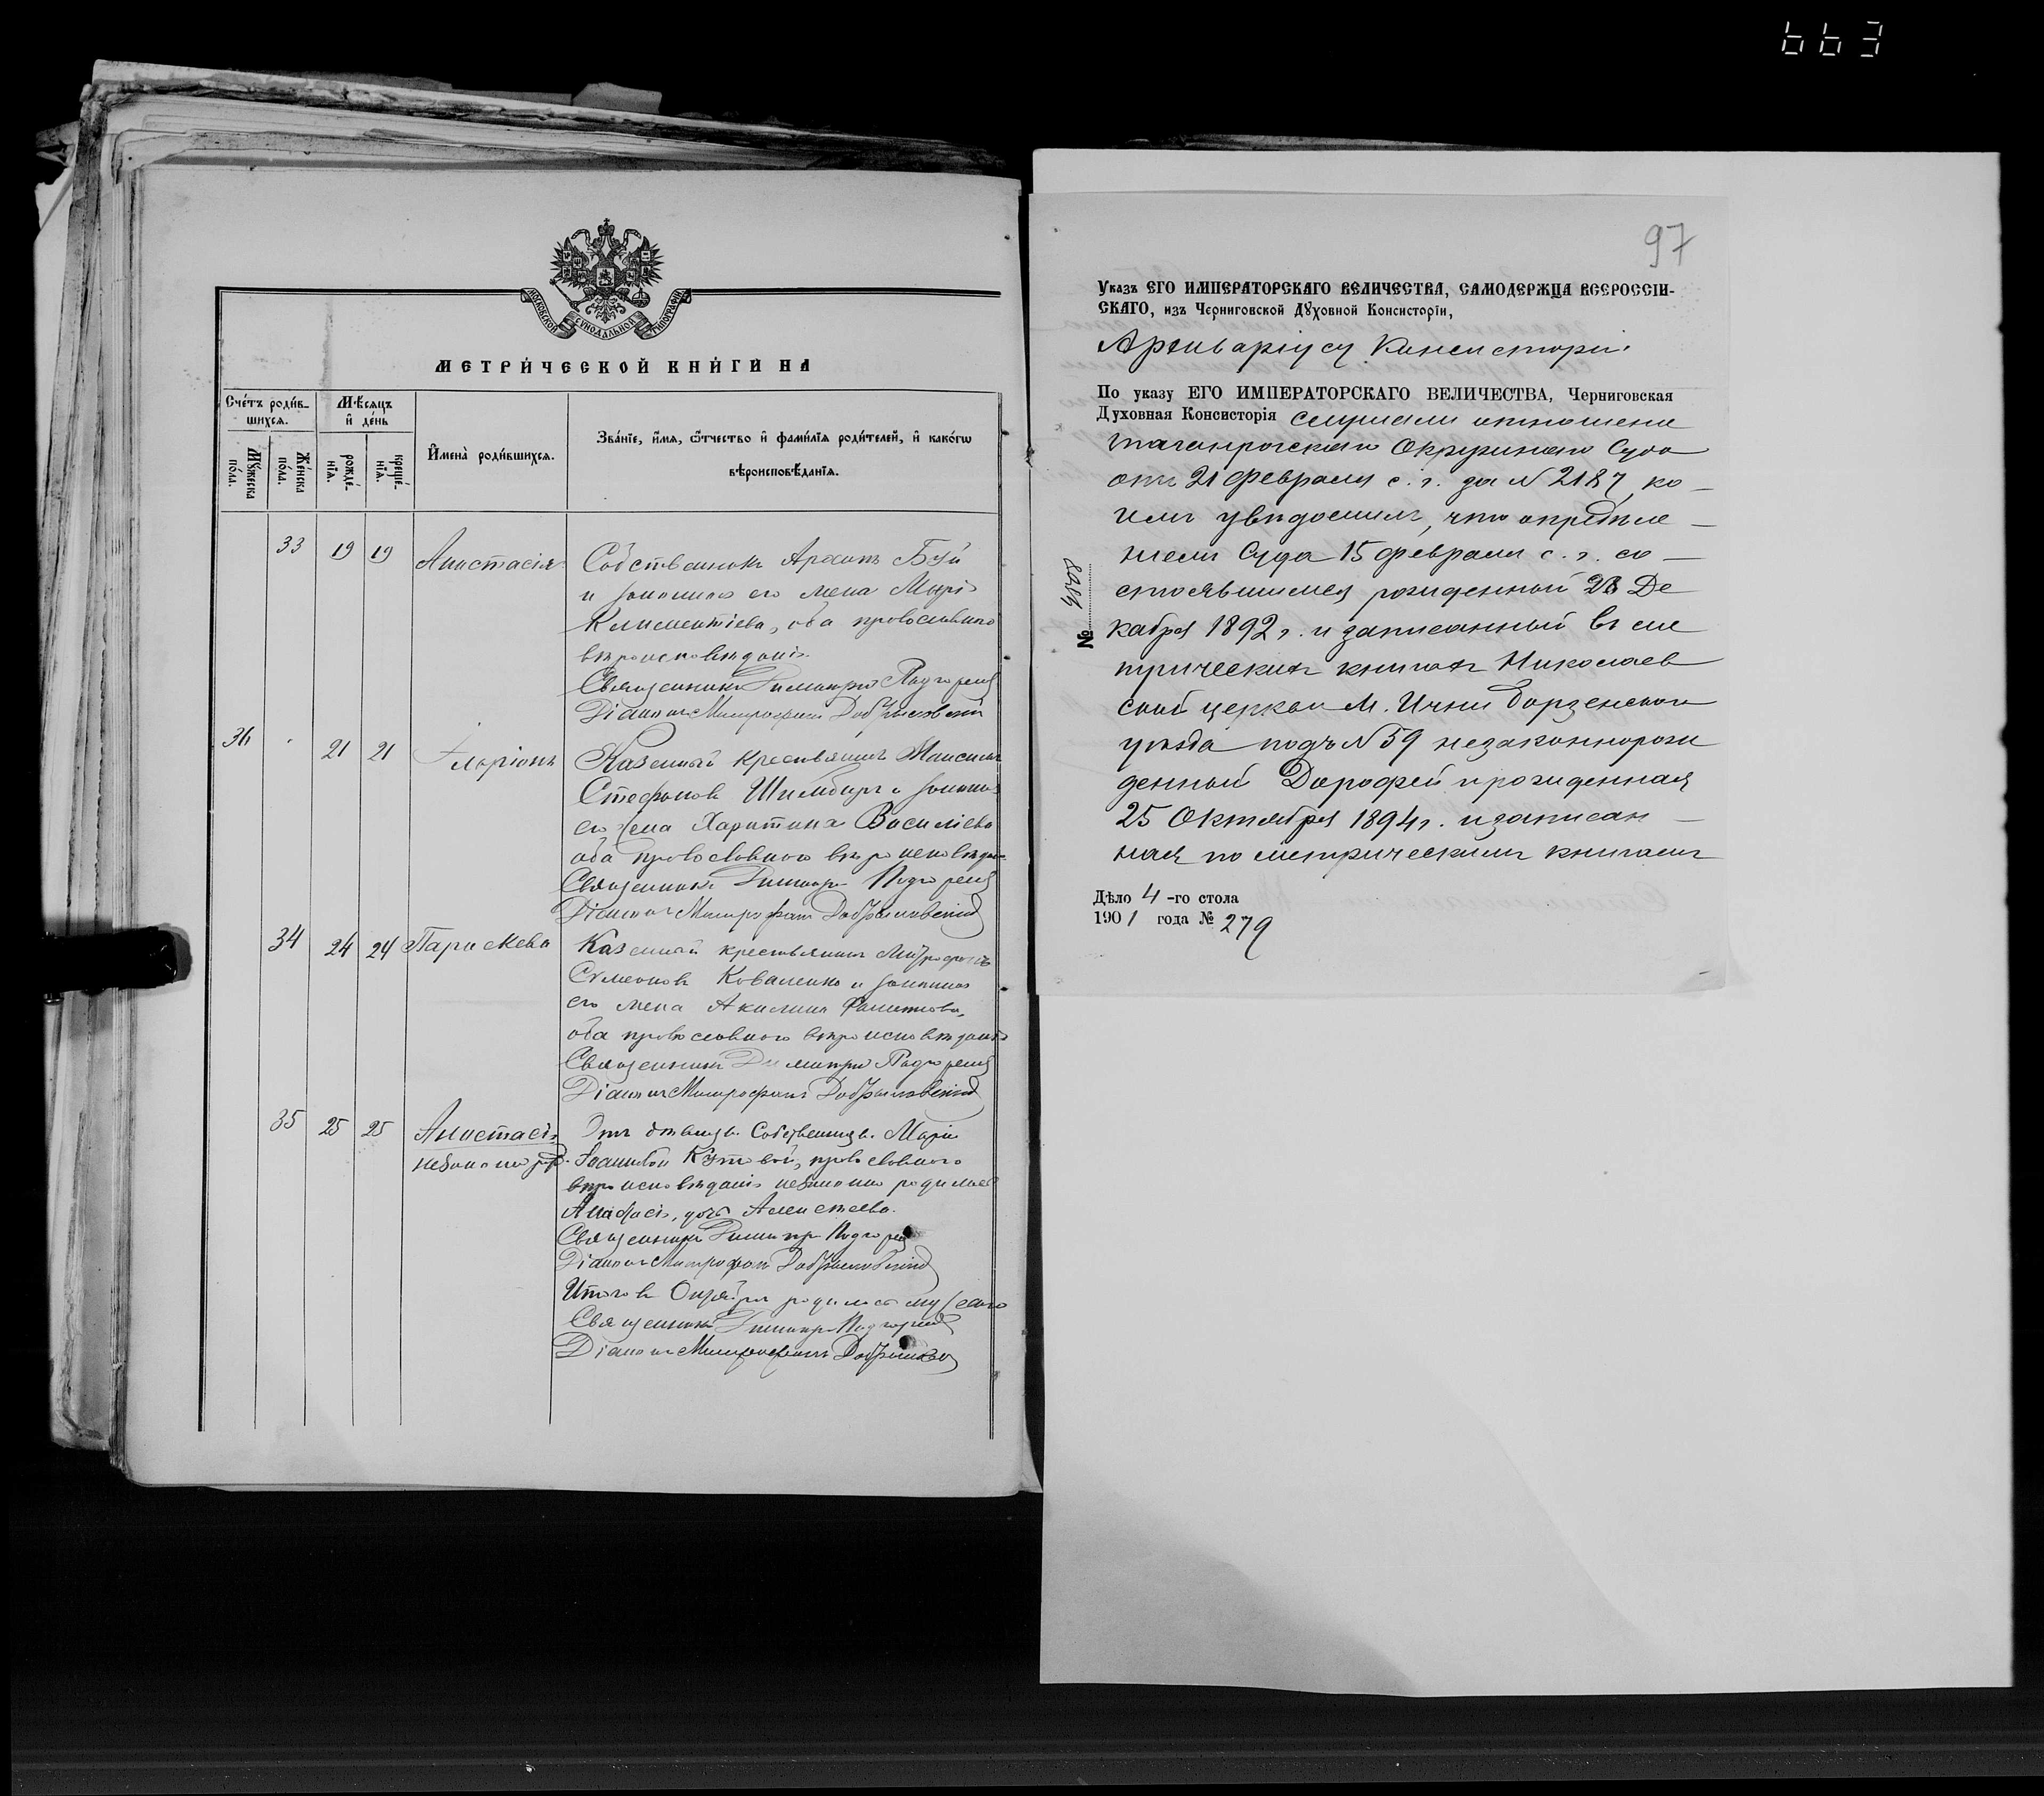 663
МОСКОВСКОЙ СУНОДАЛЬНОЙ ТИПОГРАФІИ
МЕТРИ́ЧЕСКОЙ КНИ́ГИ НА
Сче́тъ роди́в-
шихсѧ.
Мꙋ́жеска
по́ла.
Же́нска
по́ла.
Мѣ́сѧцъ
и҆ де́нь
рожде́-
нїѧ.
креще́-
нїѧ.
И҆мена̀ роди́вшихсѧ.
Зва́нїе, и҆́мѧ, ѻ҆́тчество и҆ фами́лїѧ роди́телей, и҆ како́гѡ
вѣроисповѣ́данїѧ.
33 19 19 Анастасія Собственникъ Архипъ Буй
и законная его жена Марія
Климентіева, оба православнаго
вѣроисповѣданія.
Священникъ Димитрій
Діаконъ Митрофанъ
36 21 21 Иларіонъ Казенный крестьянинъ Максимъ
Стефановъ и законная
его жена Харитина Василіева
оба православнаго вѣроисповѣдан.
Священникъ Димитрій
Діаконъ Митрофанъ
34 24 24 Параскева Казенный крестьянинъ Митрофанъ
Симеоновъ Коваленко и законная
его жена Акилина
оба православнаго вѣроисповѣданія
Священникъ Димитрій
Діаконъ Митрофанъ
35 25 25 Анастасія
незаконнор.
Отъ дѣвицы Собственницы Маріи
православнаго
вѣроисповѣданія незаконно родилась
дочь
Священникъ Димитрій
Діаконъ Митрофанъ
Итого въ родилось
Священникъ Димитрій
Діаконъ Митрофанъ
97
Указъ ЕГО ИМПЕРАТОРСКАГО ВЕЛИЧЕСТВА, САМОДЕРЖЦА ВСЕРОССІЙ-
СКАГО, изъ Черниговской Дꙋховной Консисторіи,
Архиваріусу Консисторіи.
По указу ЕГО ИМПЕРАТОРСКАГО ВЕЛИЧЕСТВА, Черниговская
Духовная Консисторія слушали отношеніе
Таганрогскаго Окружнаго Суда
отъ 21 февраля с. г. за № 2187, ко-
имъ увѣдомилъ, что опредѣле-
ніемъ Суда 15 февраля с. г. со-
стоявшимся рожденный Де
кабря 1892 г. и записанный въ ме
трическихъ книгахъ Николаев
ской церкви М. Ични Борзенскаго
уѣзда подъ № 59 незаконнорож
денный Дорофей и рожденная
25 Октября 1894 г. и записан-
ная по метрическимъ книгамъ
№
Дѣло 4 -го стола
1901 года № 279